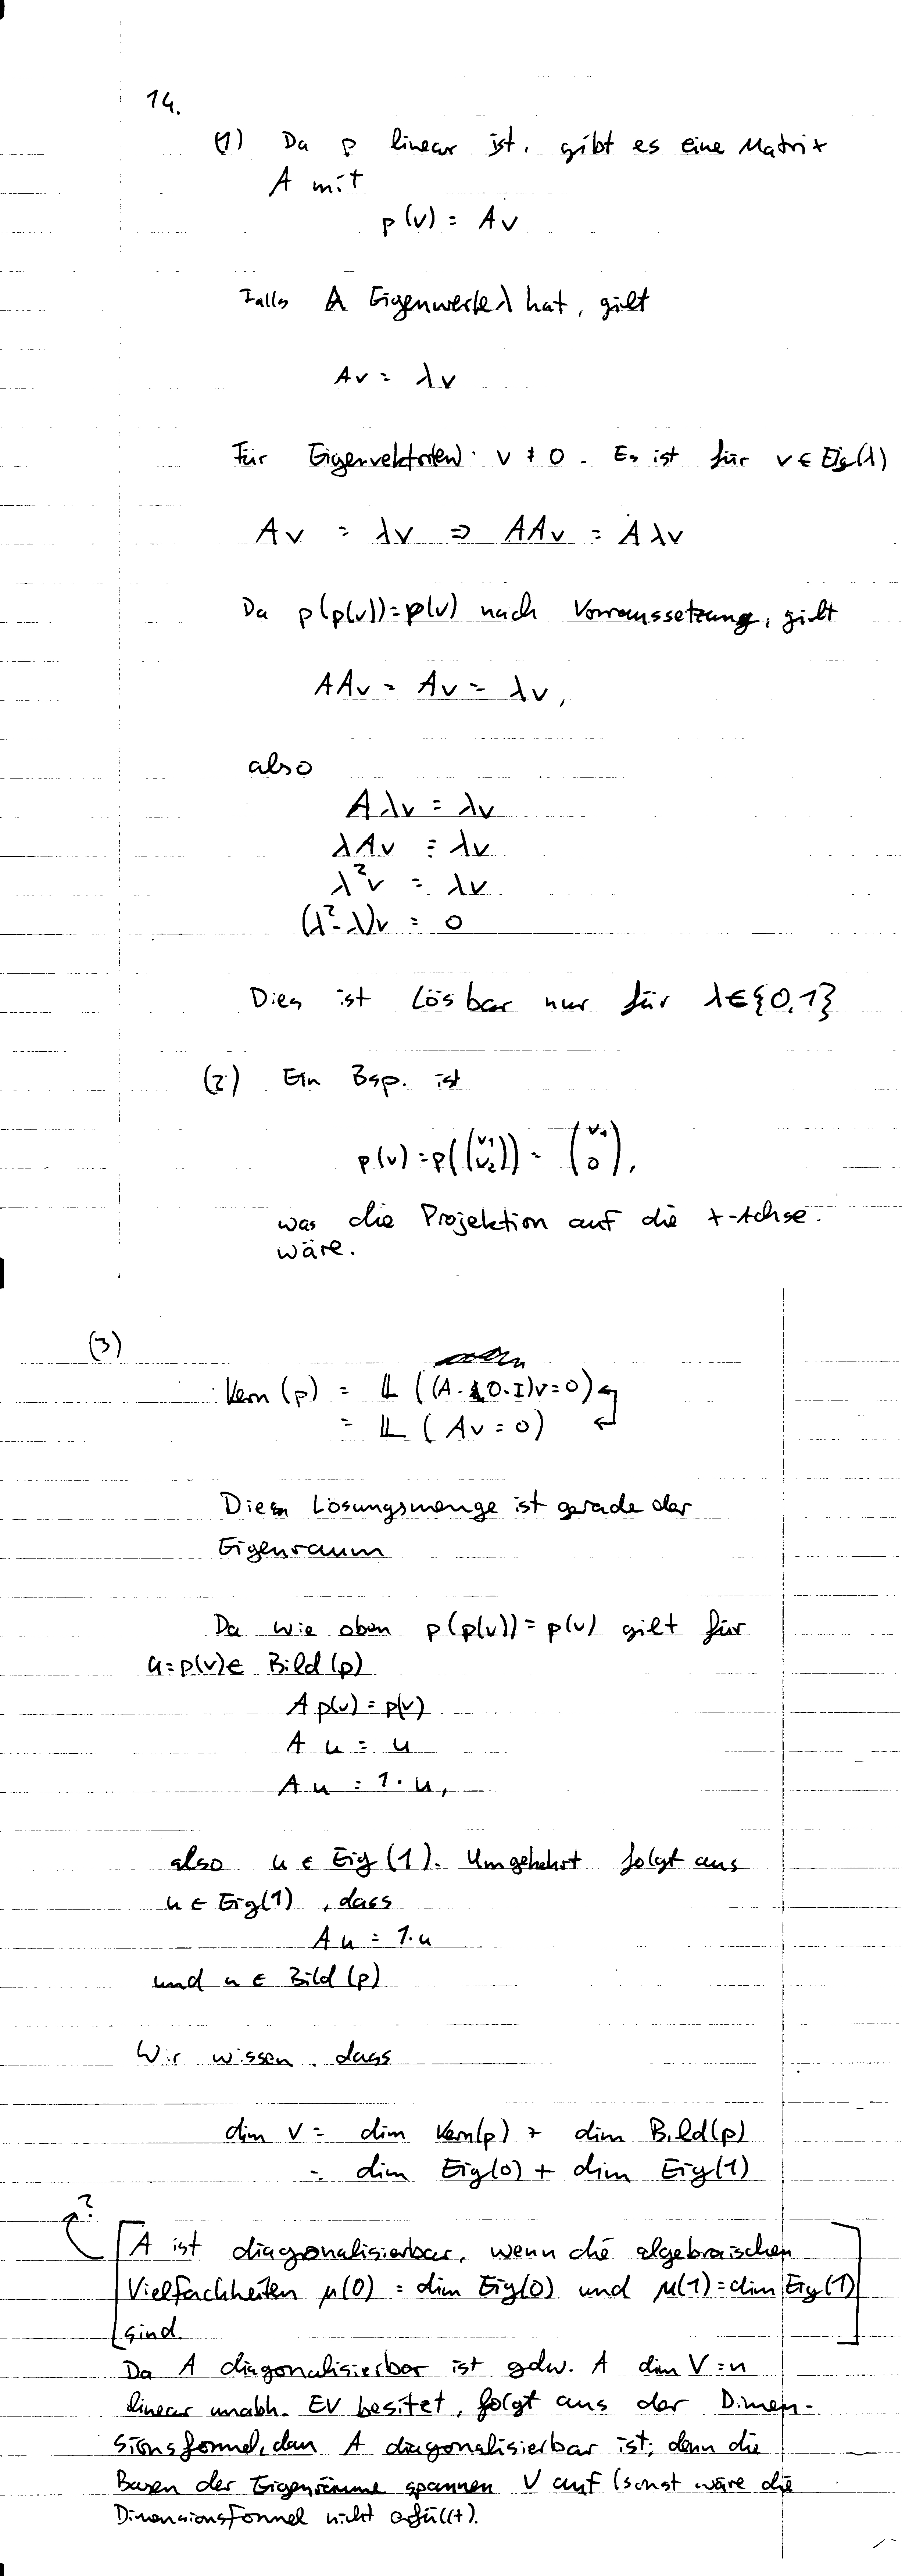 14.
(1) Da p linear ist, gibt es eine Matrix
A mit
p(v) = Av
Falls A Eigenwerte λ hat, gilt
Av = λv
Für Eigenvektor(en) v ≠ 0. Es ist für v ∈ Eig(λ)
Av = λv ⇒ AAv = Aλv
Da p(p(v))=p(v) nach Vorraussetzung, gilt
AAv = Av = λv,
also
Aλv = λv
λAv = λv
λ²v = λv
(λ²-λ)v = 0
Dies ist lösbar nur für λ∈{0,1}
(2) Ein Bsp. ist
p(v)=p((v₁ v₂)) = (v₁ 0),
was die Projektion auf die x-Achse
wäre.
(3)
Kern(p) = 𝕃((A-0·I)v=0)
= 𝕃(Av=0)
Diese Lösungsmenge ist gerade der
Eigenraum
Da wie oben p(p(v))=p(v) gilt für
u=p(v)∈ Bild(p)
Ap(v)=p(v)
Au = u
Au = 1·u,
also u ∈ Eig(1). Umgekehrt folgt aus
u ∈ Eig(1), dass
Au = 1·u
und u ∈ Bild(p)
Wir wissen, dass
dim V = dim Kern(p) + dim Bild(p)
= dim Eig(0) + dim Eig(1)
?
[A ist diagonalisierbar, wenn die algebraischen
Vielfachheiten μ(0) = dim Eig(0) und μ(1)=dim Eig(1)
sind.]
Da A diagonalisierbar ist gdw. A dim V=n
linear unabh. EV besitzt, folgt aus der Dimen-
sionsformel, dan A diagonalisierbar ist; denn die
Basen der Eigenräume spannen V auf (sonst wäre die
Dimensionsformel nicht erfüllt).